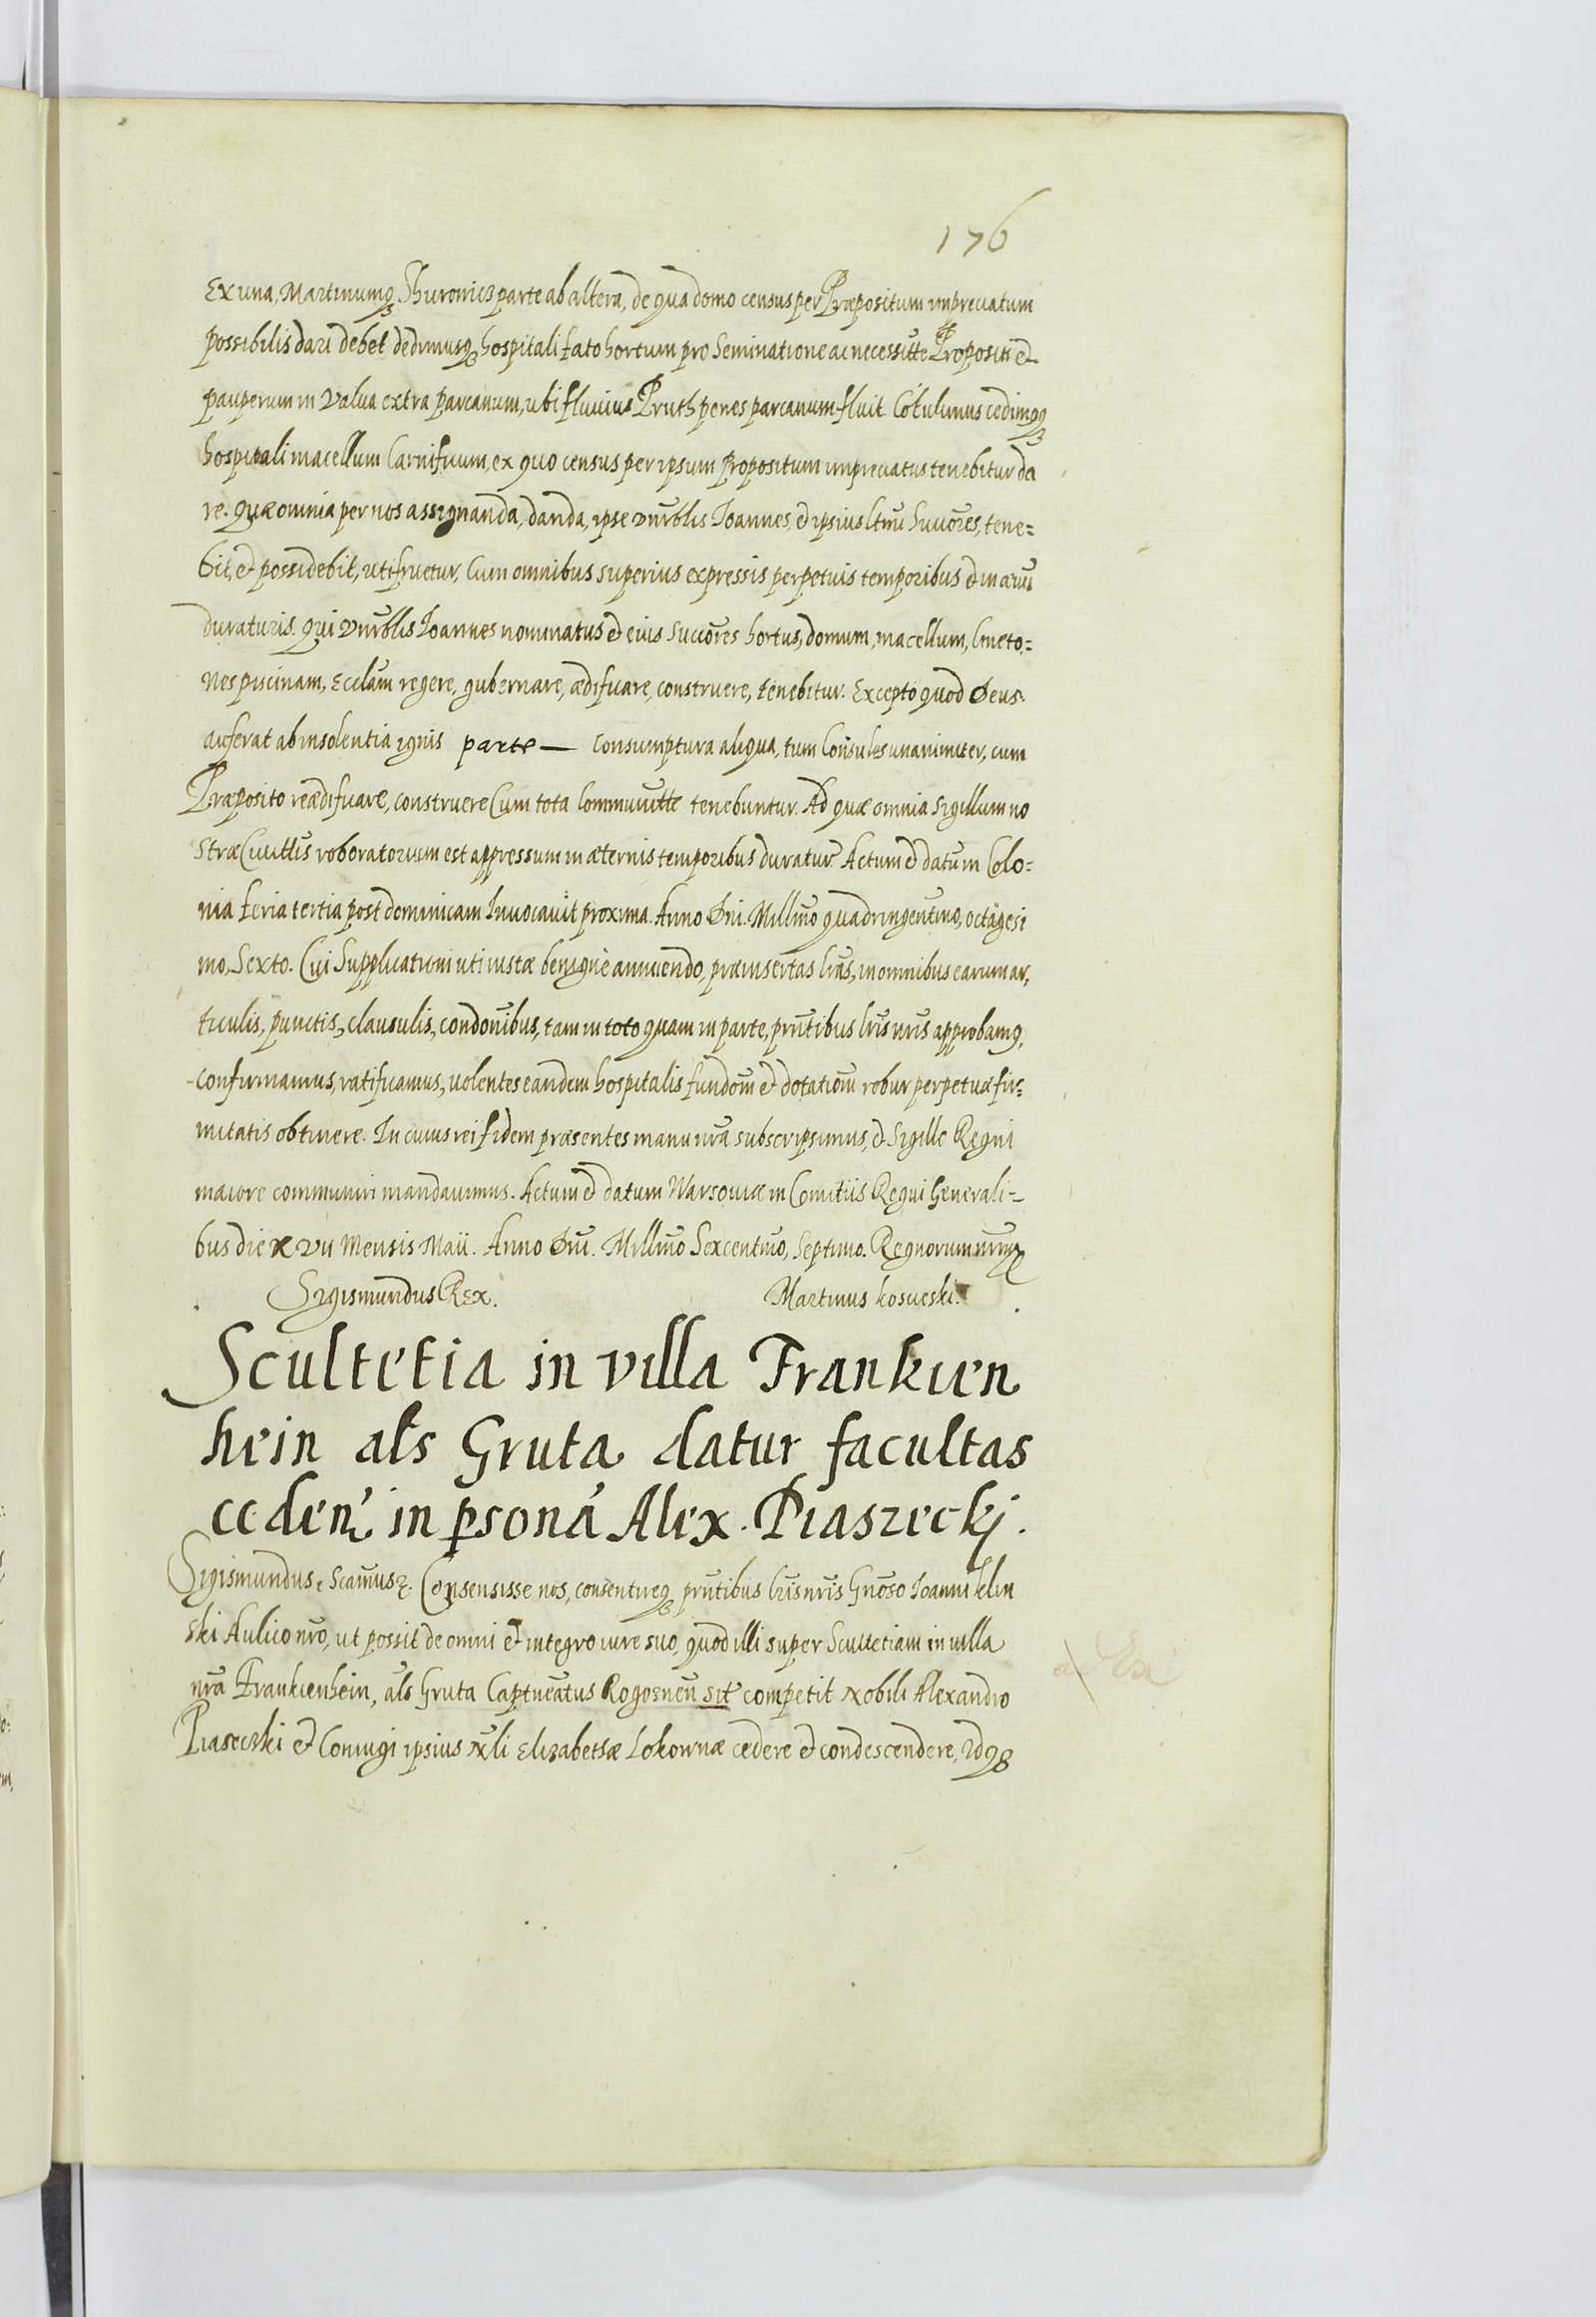 176
Ex una, Martinumq₃ Thuronicz parte ab altera, de qua domo census per Præpositum imprecatum
possibilis dari debet dedimusq₃ hospitali fato hortum pro Seminatione ac necessitte Propositi et
pauperum in Valua extra parcanum, ubi fluuius Pruth penes parcanum fluit. Cōtulimus cedimq₃
hospitali macellum Carnificum, ex quo census per ipsum Propositum imprecatus tenebitur da
re. Quæ omnia per nos assignanda, danda, ipse vnrblis Ioannes, et ipsius ltmi Succōres, tene=
bit, et possidebit, utifruetur, Cum omnibus superius expressis perpetuis temporibus et in ævū
duraturis. Qui vnrblis Ioannes nominatus et eius Succōres hortus, domum, macellum, Cmeto,=
nes piscinam, Ecclām regere, gubernare, ædificare, construere, tenebitur. Excepto quod Deus
auferat ab insolentia ignis parte — consumptura aliqua, tum Cōnsules unanimiter, cum
Præposito reædificare, construere Cum tota Communitte tenebuntur. Ad quæ omnia sigillum no
stræ Ciuittis roboratorium est appressum in æternis temporibus duratur Actum et datum Colo=
nia feria tertia post dominicam Inuocauit proxima. Anno Dni. Millmo quadringentmo, octuagesi
mo, Sexto. Cui Supplicationi uti iustæ benignè annuendo, præinsertas lras, in omnibus earum ar,
ticulis, punctis, clausulis, condonibus, tam in toto quam in parte, prntibus lris nris approbamq,
confirmamus, ratificamus, uolentes eandem hospitalis fundom et dotationi robur perpetuæ fir=
mitatis obtinere. In cuius rei fidem præsentes manu nra subscripsimus, et Sigillo Regni
maiore communiri mandauimus. Actum et datum Warsouiæ in Comitiis Regni Generali=
bus die xvii Mensis Maii. Anno Dni. Millmo Sexcentmo, Septimo. Regnorum nrorum
Sigismundus Rex. Martinus kosueski.
Scultetia in villa Frankien
hein als Gruta datur facultas
cedenˀ in psoná Alex. Piaszeckj.
Sigismundus etc Scāmus etc. Consensisse nos, consentireq₃ prntibus lris nris Gnoso Ioanni klin
ski Aulico nro, ut possit de omni et integro iure suo, quod illi super Scultetiam in villa
nra Frankienhein, als Gruta Captneatus Rogoznen sitˀ competit Nobili Alexandro
Piaseczki et Coniugi ipsius Nli Elizabethæ Lokownæ cedere et condescendere, Idq₃